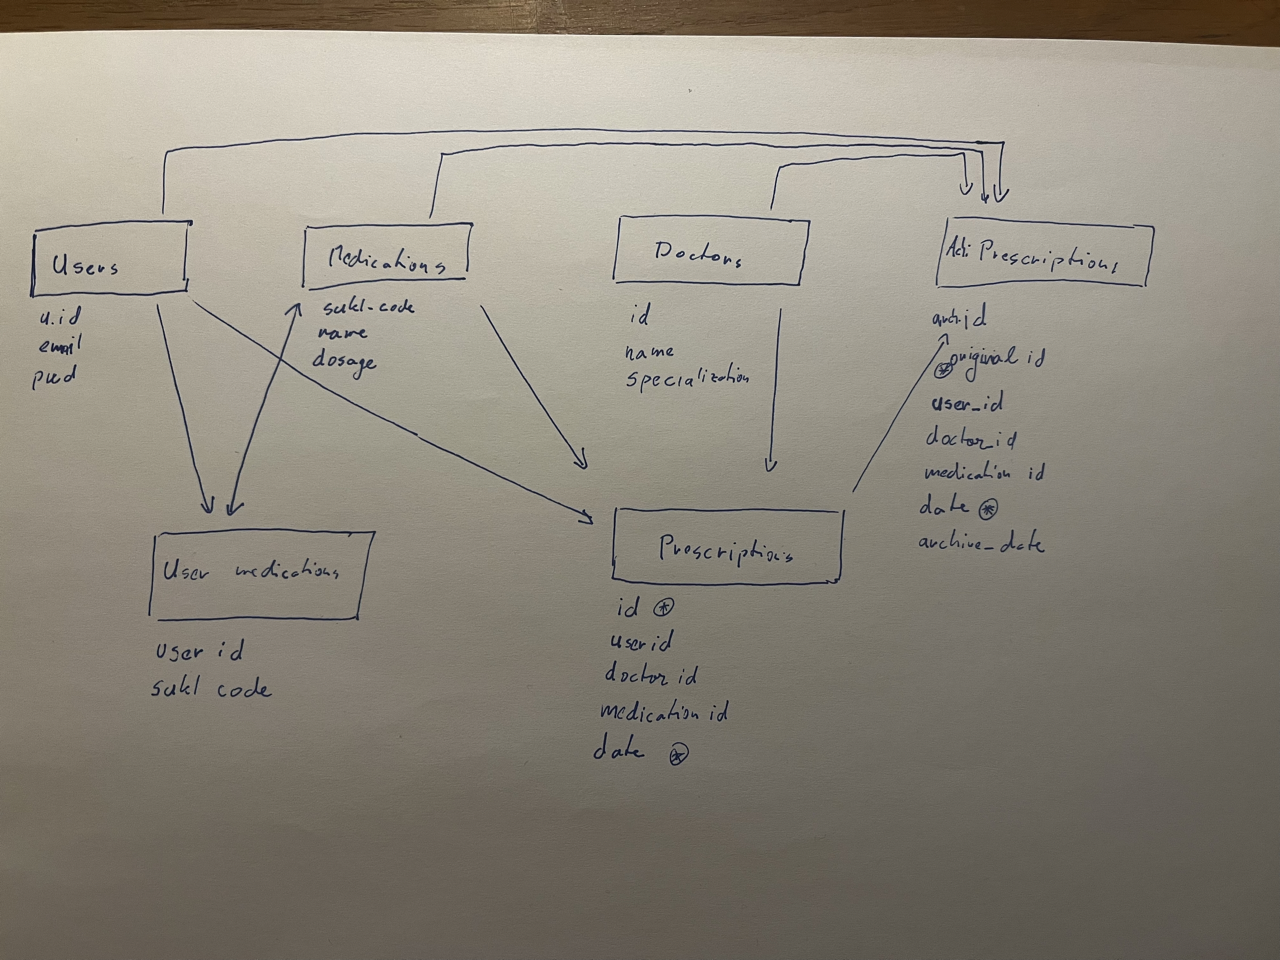 Users
u.id
email
pwd
Medications
sukl-code
name
dosage
Doctors
id
name
specialization
Prescriptions
arch.id
original id
user_id
doctor_id
medication id
date
archive_date
User medications
user id
sukl code
Prescriptions
id
user id
doctor id
medication id
date